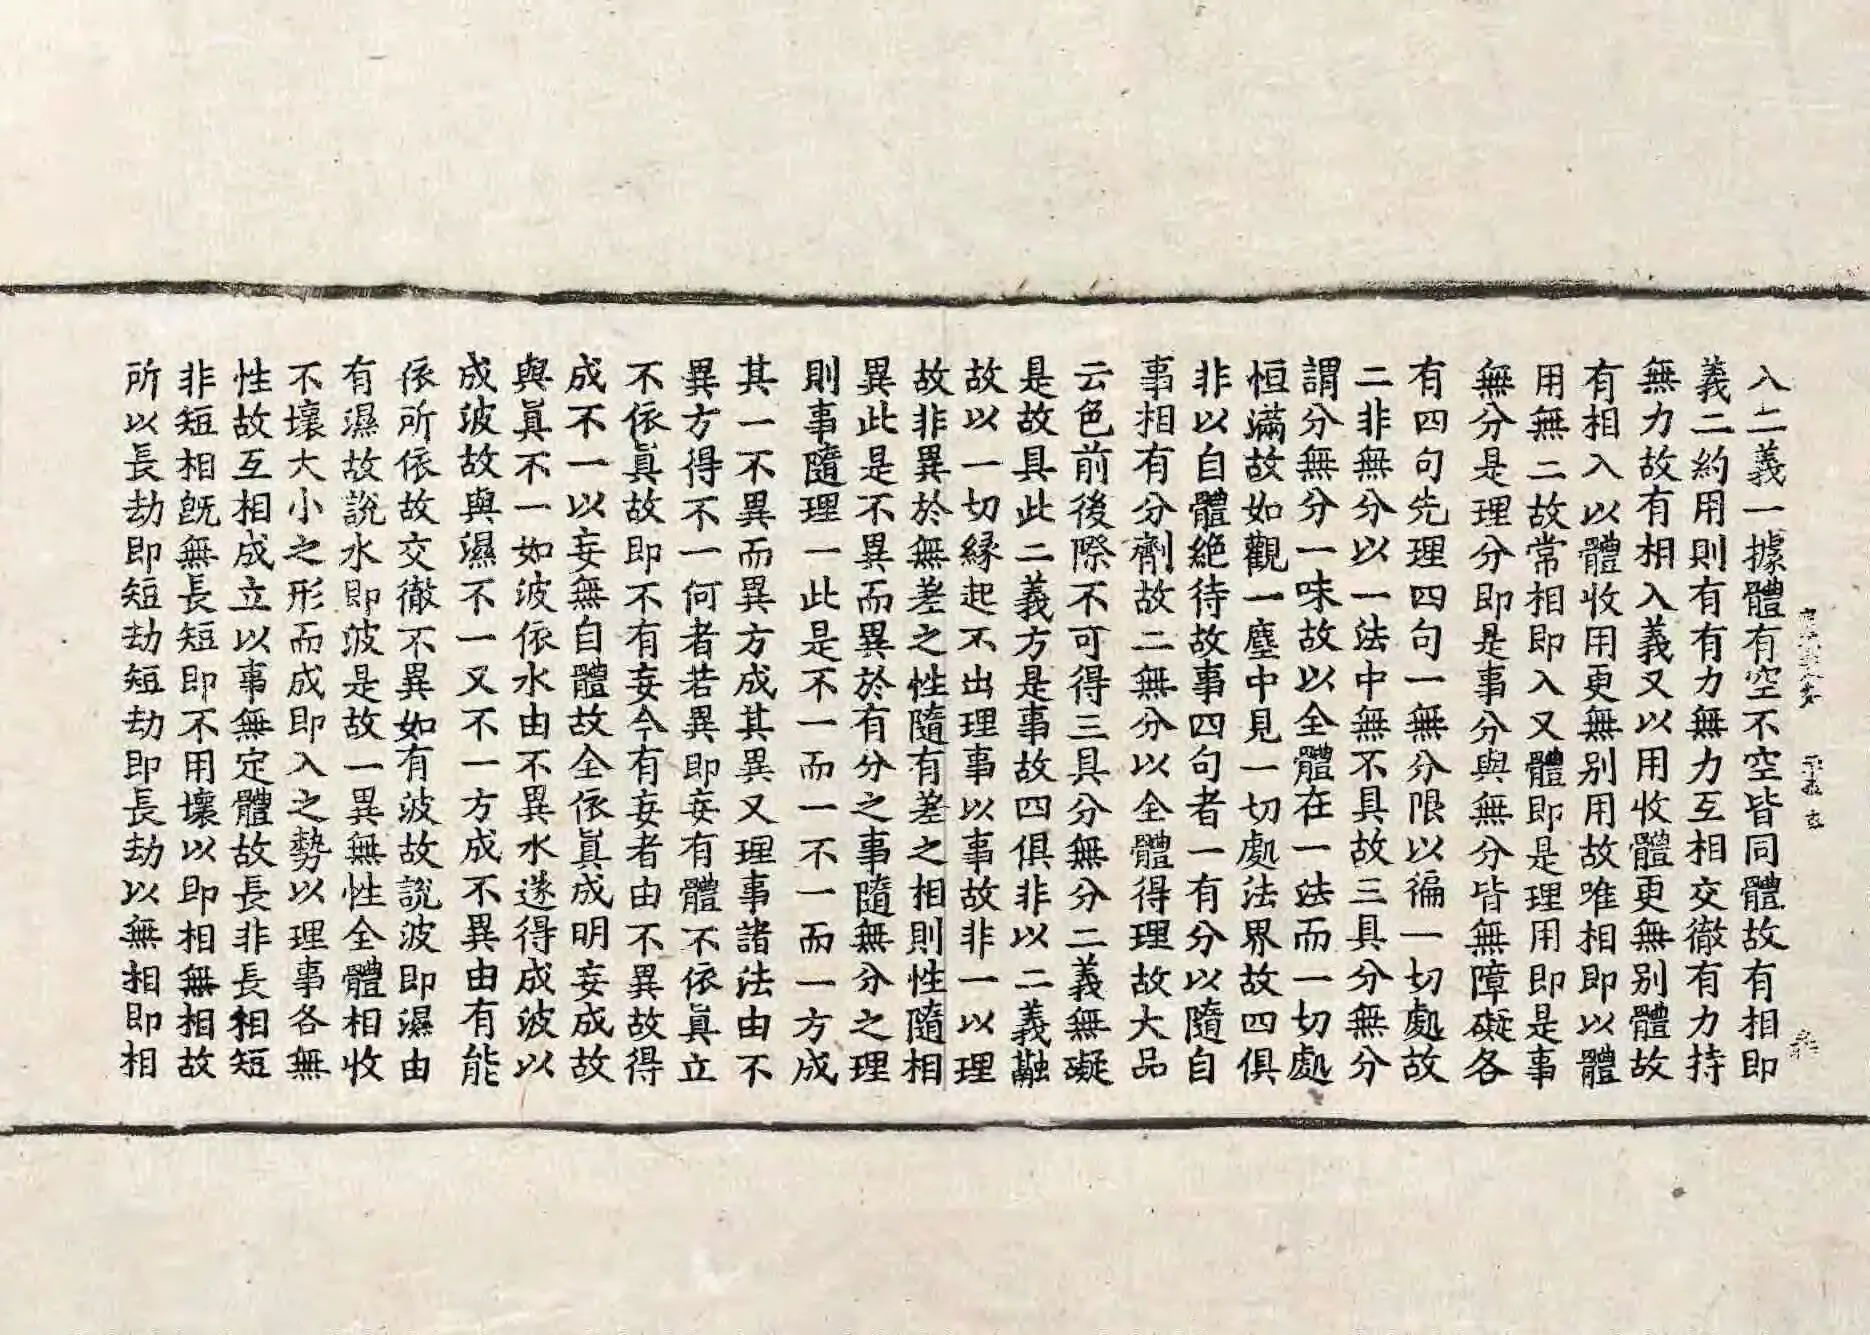 入二義一據體有空不空皆同體故有相即
義二約用則有有力無力互相交徹有力持
無力故有相入義又以用收體更無别體故
有相入以體收用更無别用故唯相即以體
用無二故常相即入又體即是理用即是事
無分是理分即是事分與無分皆無障礙各
有四句先理四句一無分限以徧一切處故
二非無分以一法中無不具故三具分無分
謂分無分一味故以全體在一法而一切處
恒滿故如觀一塵中見一切處法界故四俱
非以自體絶待故事四句者一有分以隨自
事相有分劑故二無分以全體得理故大品
云色前後際不可得三具分無分二義無礙
是故具此二義方是事故四俱非以二義融
故以一切緣起不出理事以事故非一以理
故非異於無差之性隨有差之相則性隨相
異此是不異而異於有分之事隨無分之理
則事隨理一此是不一而一不一而一方成
其一不異而異方成其異又理事諸法由不
異方得不一何者若異即妄有體不依眞立
不依眞故即不有妄今有妄者由不異故得
成不一以妄無自體故全依眞成明妄成故
與眞不一如波依水由不異水遂得成波以
成波故與濕不一又不一方成不異由有能
依所依故交徹不異如有波故説波即濕由
有濕故説水即波是故一異無性全體相收
不壞大小之形而成即入之勢以理事各無
性故互相成立以事無定體故長非長相短
非短相既無長短即不用壞以即相無相故
所以長劫即短劫短劫即長劫以無相即相